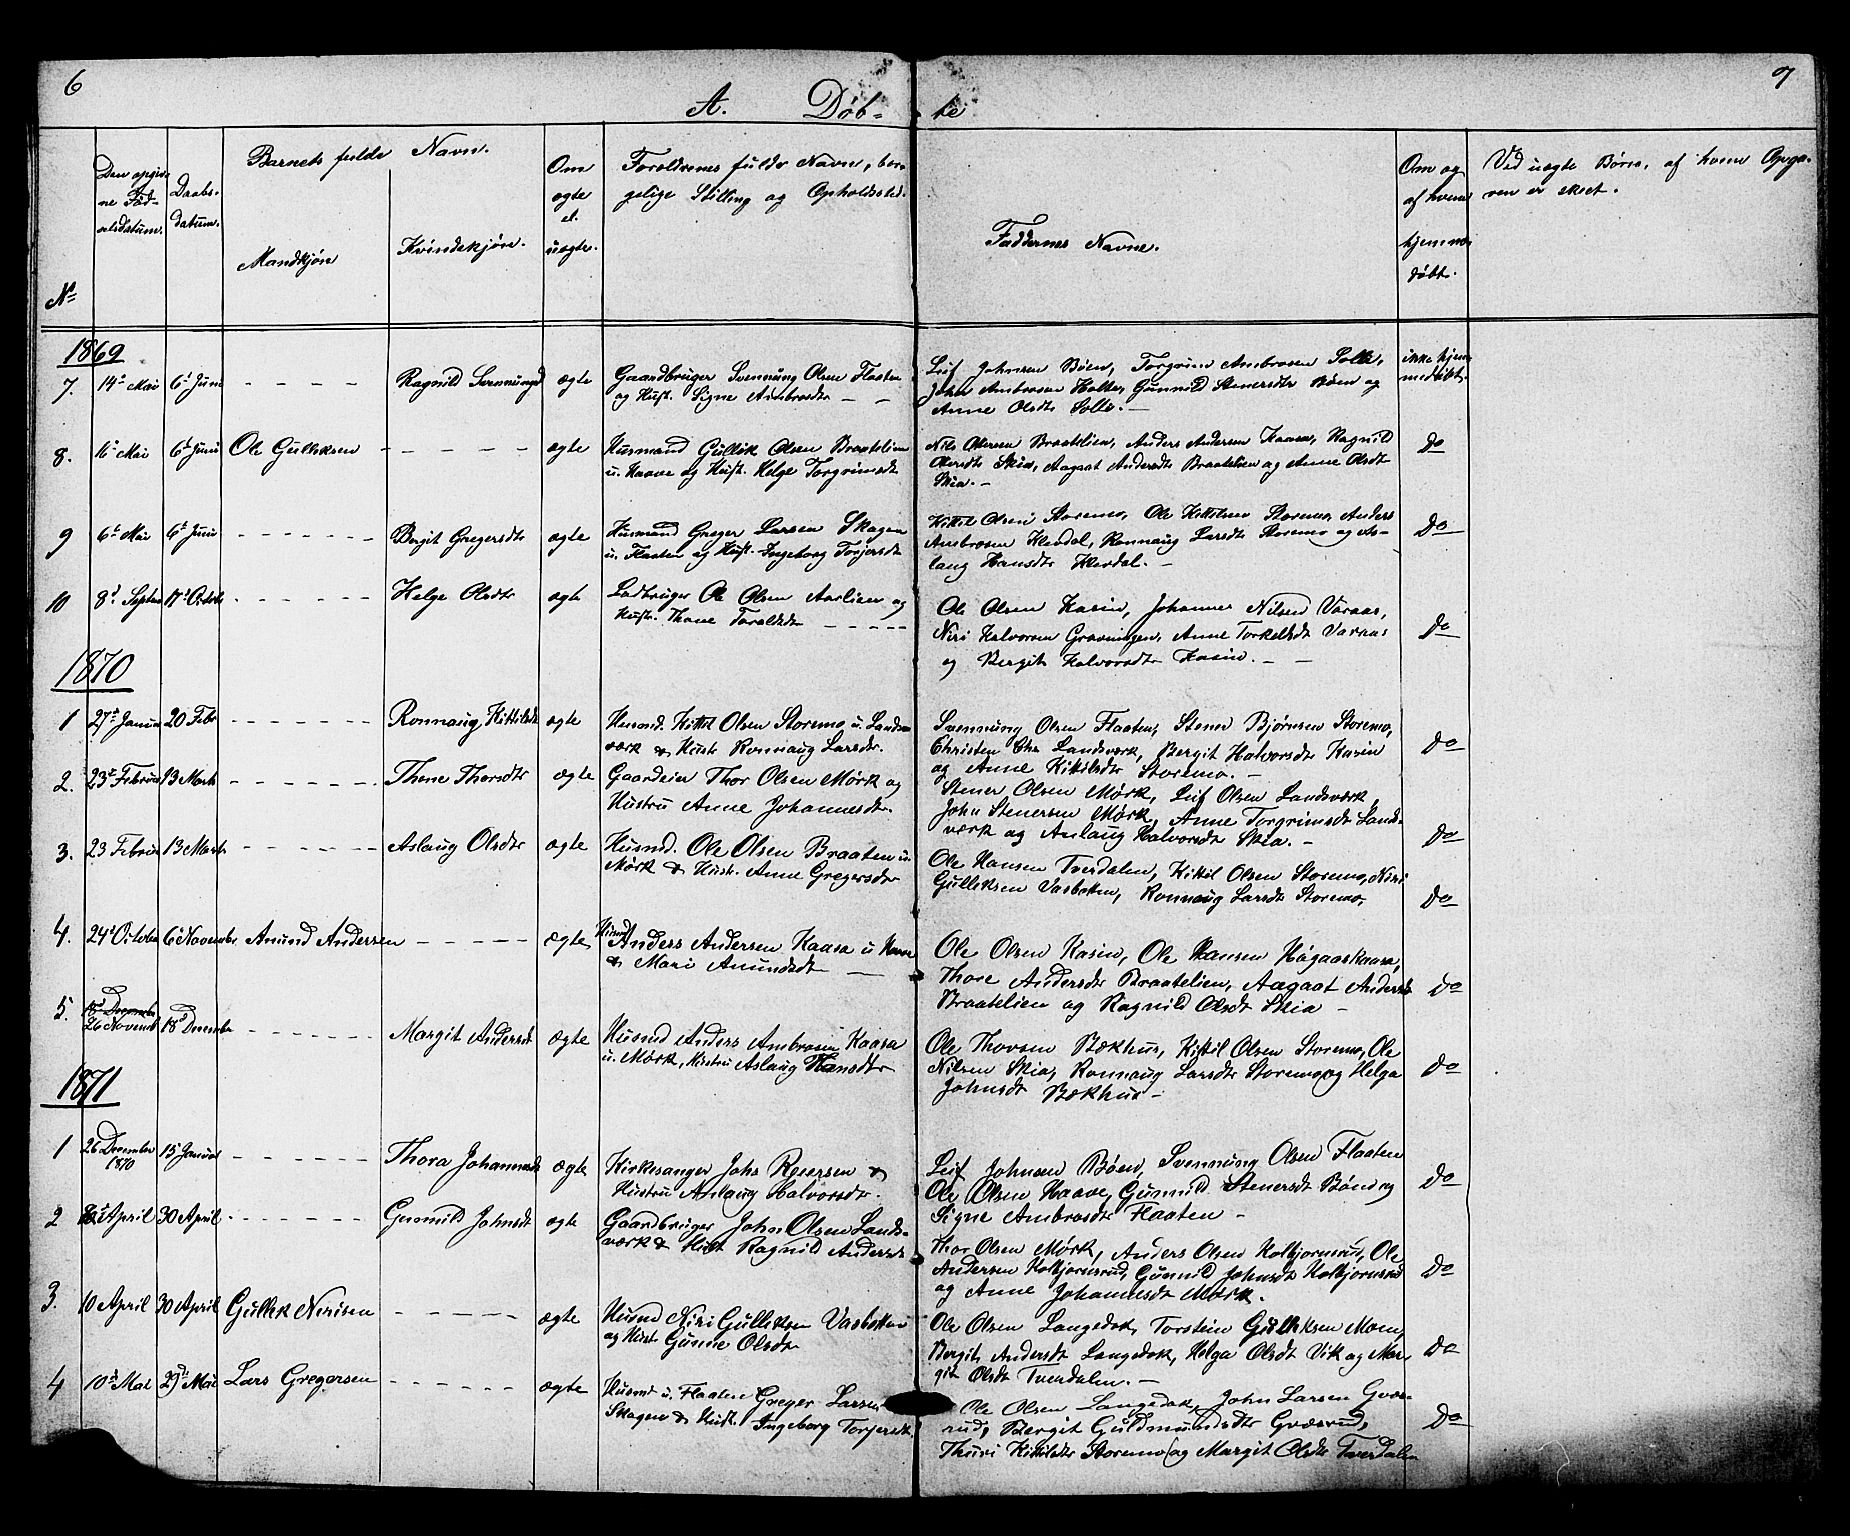 6
7
A. Døb-
te
Den opgiv-
ne Fød-
selsdatum.
Daabs-
datum.
Barnets fulde Navn.
Mandkjøn
Kvindekjøn.
Om
ægte
el.
uægte.
Forældrenes fulde Navn, bor-
gelige Stilling og Opholdssted.
Faddernes Navne.
Om og
af hvem
hjemme-
døbt.
Ved uægte Børn, af hvem Opga-
ven er skeet.
No
1869
7. 14de Mai 6te Juni - - - - Ragnild Svennungsd ægte Gaardbruger Svennung Olsen Flaaten
og Hust. Signe Ambrosdtr - -
Leif Johnsen Bøen, Torgrim Ambrosen Solli,
John Ambrosen Holte, Gunnild Stenersdtr Bøen og
Anne Olsdtr Solli. -
ikke hjem-
medøbt.
8. Mai 6te Juni Ole Gulliksen - - - - - ægte Husmand Gullik Olsen Braatelien
u. Haave og Hust. Helge Torgrimsdtr
Nils Olsen Braatelien, Anders Andersen Kaasa, Ragnild
Olsdtr Skia, Aagaat Andersdtr Braatelien og Anne Olsdtr
Skia. -
Do
9 6te Mai 6te Juni - - - - - - Birgit Gregersdtr ægte Husmand Greger Larsen Skagen
u. Flaaten og Hust. Ingeborg Torjersdtr
Kittil Olsen Storemo, Ole Kittilsen Storemo, Anders
Ambrosen Klevdal, Ronnaug Larsdtr Storemo og As-
laug Hansdtr Klevdal. -
Do
10 8de Septbr 17de Octobr - - - - - - Helge Olsdtr ægte Ladbruger Ole Olsen Aarlien og
Hust. Thone Toraldsdtr - - - - -
Ole Olsen Kasin, Johannes Nilsen Varaas,
Niri Halvorsen Gravningen, Anne Torkelsdtr Varaas
og Bergit Halvorsdtr Kasin. - -
Do
1870
1 27de Januar 20 Febr - - - - - - Ronnaug Kittilsdtr ægte Husmd. Kittil Olsen Storemo u. Lands-
værk & Hustr. Ronnaug Larsdtr.
Svennung Olsen Flaaten, Stener Bjørnsen Storemo,
Christen Chr. Landsværk, Bergit Halvorsdtr Kasin
og Anne Kittilsdtr Storemo. -
Do
2. 23de Februar 13 Marts - - - - - - Thone Thorsdtr ægte Gaardeier Thor Olsen Mørk og
Hustru Anne Johannesdtr.
Stener Olsen Mørk, Leif Olsen Landsværk,
John Stenersen Mørk, Anne Torgrimsdt Lands-
værk og Aslaug Halvorsdt Skia. -
Do
3. 23 Februar 13 Marts - - - - - - Aslaug Olsdtr ægte Husmd. Ole Olsen Braaten u.
Mørk & Hustr. Anne Gregersdtr
Ole Hansen Tverdalen, Kittil Olsen Storemo, Niri
Gulliksen Vasbotten, Ronnaug Larsdt Storemo,
Do
4. 24de Octobr 6 Novembr. Amund Andersen - - - - - ægte Husmd
Anders Andersen Kaasa u Haave
& Mari Amundsdt -
Ole Olsen Kasin, Ole Hansen Høgaaskaasa,
Thore Andersdt Braatelien, Aagaat Andersdt
Braatelien og Ragnild Olsdt Skia -
Do
5. 18de Decembr
26 Novemb 18de Decembr - - - - - - Margit Andersdt ægte Husmd Anders Ambrosen Kaasa
u. Mørk, Hustru Aslaug Hansdtr
Ole Thovsen Bækhus, Kittil Olsen Storemo, Ole
Nilsen Skia, Ronnaug Larsdtr Storemo og Helga
Johnsdt Bækhus -
Do
1871
1 26 December
1870 15 Januar - - - - - - Thora Johannesdt ægte Kirkesanger Johs Reiersen &
Hustru Aslaug Halvorsdtr.
Leif Johnsen Bøen, Svennung Olsen Flaaten
Ole Olsen Haave, Gunnild Stenersdt Bøen og
Signe Ambrosdtr Flaaten -
Do
2 April 30 April - - - - - - Gunnild Johnsdt ægte Gaardbruger John Olsen Lands-
værk & Hust Ragnild Andersdt
Thor Olsen Mørk, Anders Olsen Kolbjørnsrud, Ole
Andersen Kolbjørnsrud, Gunnild Johnsdt Kolbjørnsrud
og Anne Johannesdt Mørk.
Do
3. 10 April 30 April Gullik Nirisen - - - - - ægte Husmd Niri Gulliksen Vasbotten
og Hust Gunne Olsdtr
Ole Olsen Langedok, Torstein Gulliksen Moen,
Bergit Andersdt Langedok, Helga Olsdt Vik og Mar-
git Olsdt Tverdalen. -
Do
4 10de Mai 29de Mai Lars Gregersen - - - - - ægte Husmd u. Flaaten Greger Larsen
Skagen & Hust. Ingeborg Torjersdt
Ole Olsen Langedok, John Larsen Gvæs-
rud, Bergit Guldmundsdtr Gvæsrud,
Thuri Kittilsdtr Storemo og Margit Olsdtr Tverdalen
Do